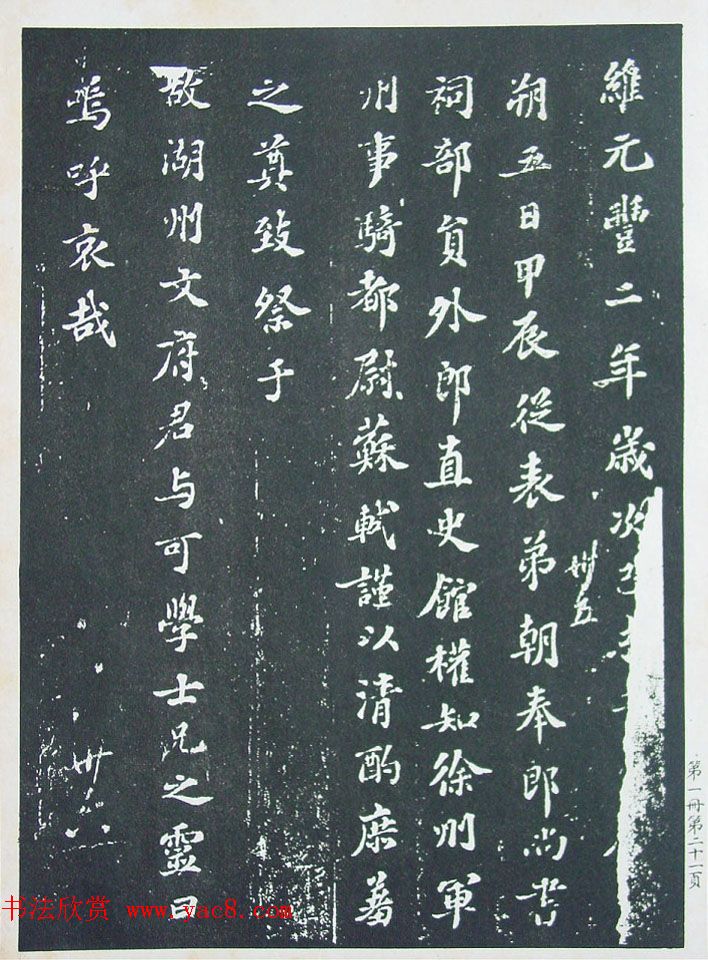 維元豐二年歲次
朔五日甲辰從表弟朝奉郎尚書
祠部員外郎直史館權知徐州軍
州事騎都尉蘇軾謹以清酌庶羞
之奠致祭于
故湖州文府君与可學士兄之靈曰
嗚呼哀哉
卅五
卅六
第一冊第二十一頁
书法欣赏 www.yac8.com